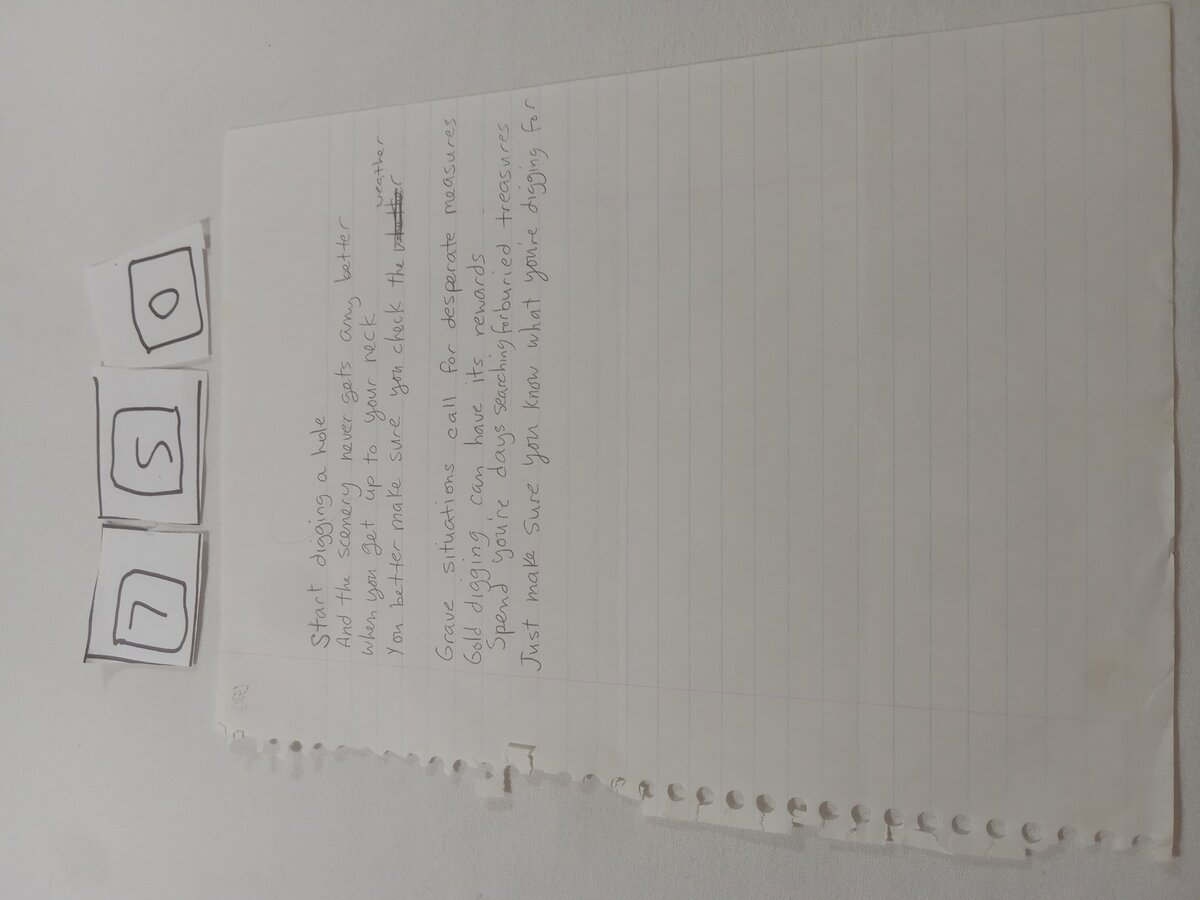 7 5 0
Start digging a hole
And the scenery never gets any better
When you get up to your neck
You better make sure you check the weather
Grave situations call for desperate measures
Gold digging can have its rewards
Spend you're days searching for buried treasures
Just make sure you know what you're digging for